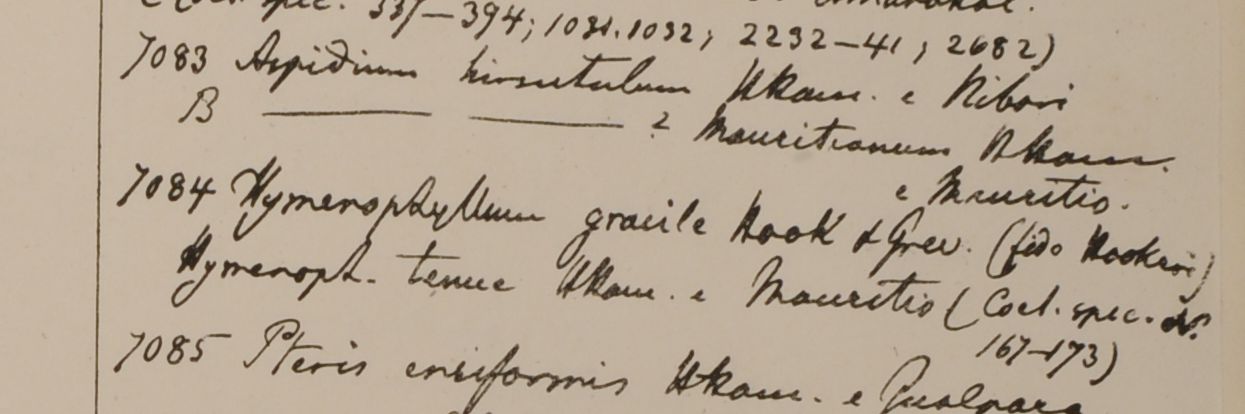 337–394; 1031.1032; 2232–41; 2682)
7083 Aspidium hirsutulum e Ribori
B ——— ——— ? Mauritianum
e Mauritio.
7084 Hymenophyllum gracile Hook & Grev. (fide Hookeri)
Hymenoph. tenue e Mauritio (Coel. spec. N.
167–173)
7085 Pteris ensiformis e Gualpara